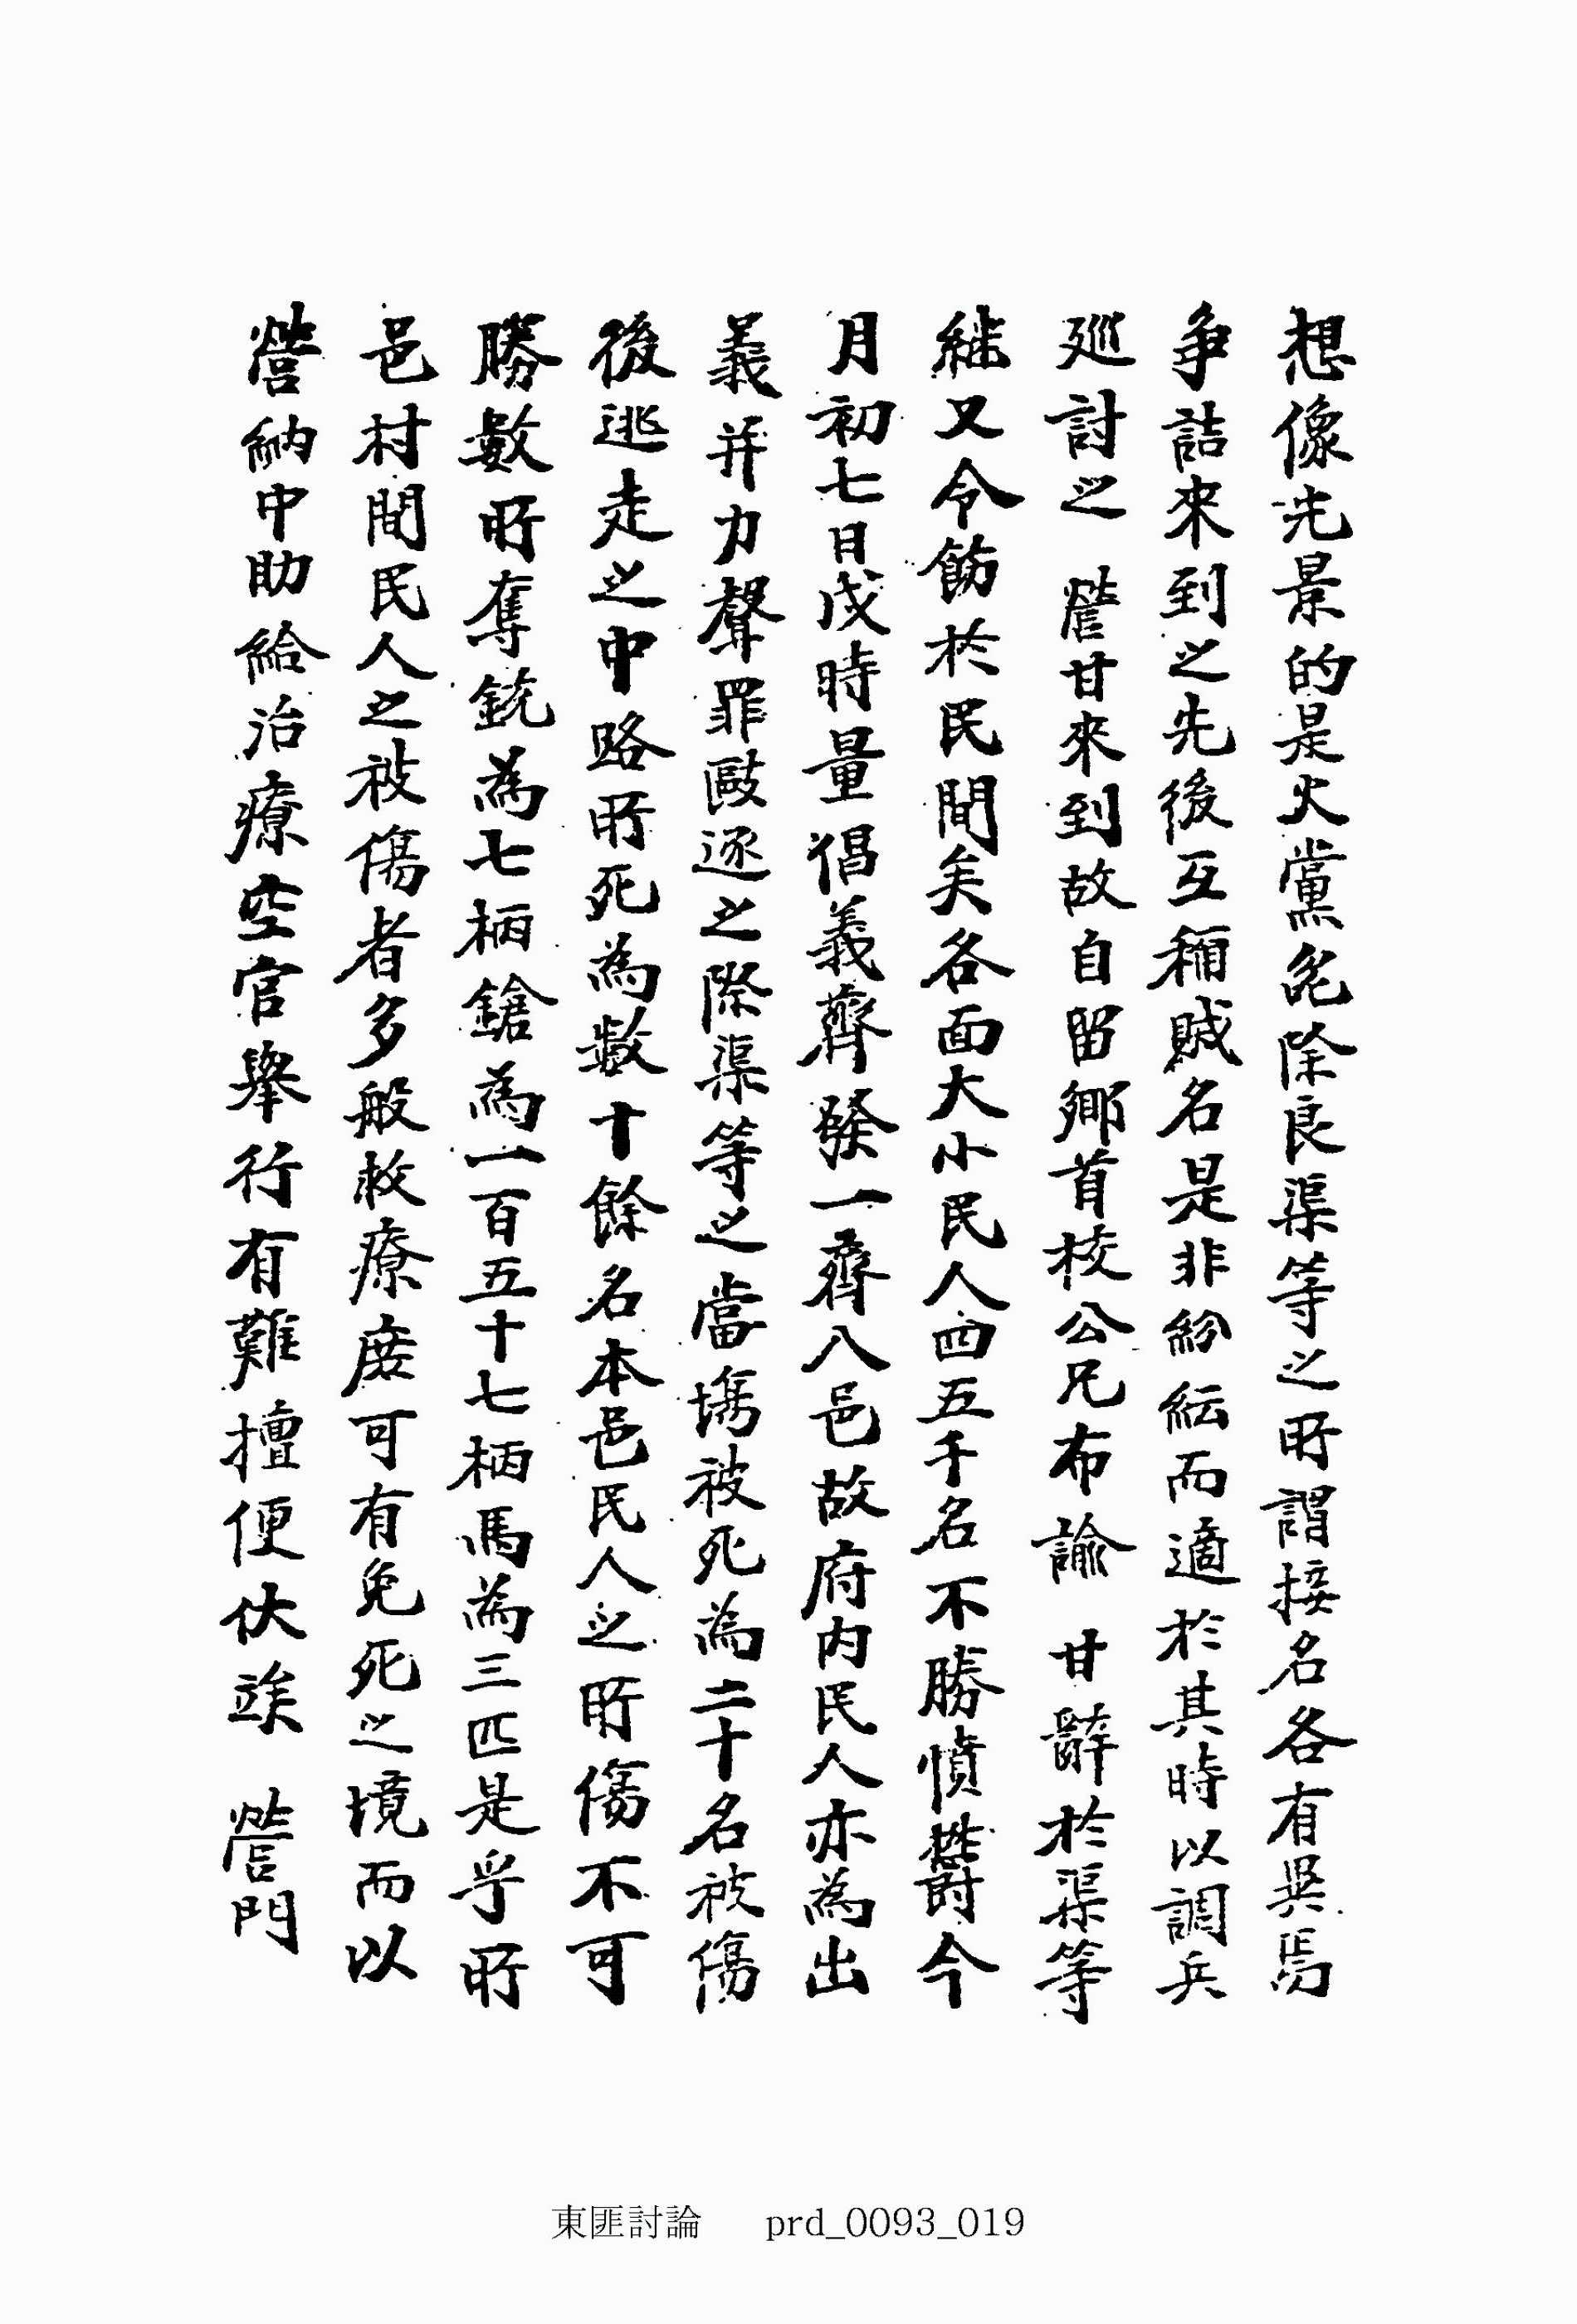 想像光景的是火黨兊除良渠等之所謂接名各有異焉
爭詰來到之先後互稱賊名是非紛紜而適於其時以調兵
廵討之 營甘來到故自留鄕首校公兄布諭 甘辭於渠等
継又令飭於民間矣各面大小民人四五千名不勝憤欝今
月初七日戌時量倡義齊發一齊八邑故府內民人亦為出
義并力聲罪毆逐之際渠等之當塲被死為二十名被傷
後逃走之中路所死為數十餘名本邑民人之所傷不可
勝數所奪銃為七柄鎗為一百五十七柄馬為三匹是乎所
邑村間民人之被傷者多般救療庶可有免死之境而以
營納中助給治療空官擧行有難擅便伏竢 營門
東匪討論 prd_0093_019